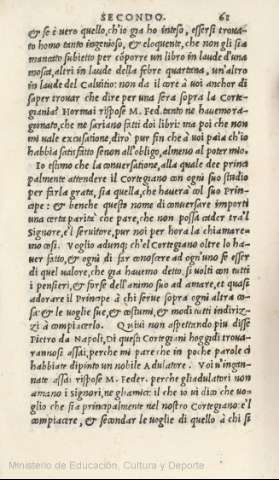 SECONDO. 61
& se è vero quello, ch'io gia ho inteso, essersi troua-
to homo tanto ingenioso, & eloquente, che non gli sia
mancato subietto per cōporre un libro in laude d'una
mosca, altri in laude della febre quartana, un'altro
in laude del Caluitio: non da il core à uoi anchor di
saper trouar che dire per una sera sopra la Corte-
giania? Hormai rispose M. Fed. tanto ne hauemo ra-
gionato, che ne sariano fatti doi libri: ma poi che non
mi uale excusatione, dirò pur fin che à uoi paia ch'io
habbia satisfatto senon all'obligo, almeno al poter mio.
Io estimo che la conuersatione, alla quale dee princi
palmente attendere il Cortegiano con ogni suo studio
per farla grata, sia quella, che hauerà col suo Prin-
cipe: & benche questo nome di conuersare importi
una certa parità che pare, che non possa cader tra'l
Signore, e'l seruitore, pur noi per hora la chiamare-
mo cosi. Voglio adunq; ch'el Cortegiano oltre lo ha-
uer fatto, & ogni dì far conoscere ad ogn'uno se esser
di quel ualore, che gia hauemo detto, si uolti con tutti
i pensieri, & forze dell'animo suo ad amare, et quasi
adorare il Principe à chi serue sopra ogni altra co-
sa: & le uoglie sue, & costumi, & modi tutti indiriz-
zi à compiacerlo. Quiui non aspettando piu disse
Pietro da Napoli, Di questi Cortegiani hoggidì troua-
rannosi assai, perche mi pare che in poche parole ci
habbiate dipinto un nobile Adulatore. Voi u'ingan-
nate assai rispose M. Feder. perche gliadulatori non
amano i signori, ne gliamici: il che io ui dico che uo-
glio che sia principalmente nel nostro Cortegiano: e'l
compiacere, & secondar le uoglie di quello à chi si
Ministerio de Educación, Cultura y Deporte